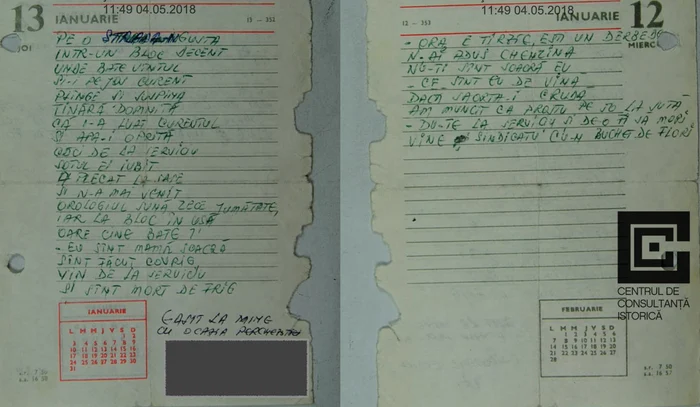 11:49 04.05.2018
13 IANUARIE
JOI
13 - 352
PE O STRADA NGUSTA
INTR-UN BLOC DECENT
UNDE BATE VINTUL
SI-I PUȚIN CURENT
PLINGE SI SUSPINA
TINĂRĂ DOMNITĂ
CĂ I-A LUAT CURENTUL
SI APA-I OPRITĂ
DE LA SERVICIU
SOTUL EI IUBIT
A PLECAT LA SASE
SI N-A MAI VENIT
OROLOGIUL SUNĂ ZECE JUMĂTATE,
IAR LA BLOC ÎN USĂ
OARE CINE BATE ?!
- EU SÎNT MAMĂ SOACRĂ
SÎNT FĂCUT COVRIG
VIN DE LA SERVICIU
SI SINT MORT DE FRIG
IANUARIE
L M M J V S D
1 2
3 4 5 6 7 8 9
10 11 12 13 14 15 16
17 18 19 20 21 22 23
24 25 26 27 28 29 30
31
GASIT LA MINE
CU OCAZIA PERCHEZITIEI
s.r. 7 50
s.s. 16 58
11:49 04.05.2018
12 - 353
IANUARIE 12
MIERCURI
- ORA E TIRZIE, ESTI UN DERBEDEU
N-AI ADUS CHENZINA
NU-TI SÎNT SOACRĂ EU
- CE SINT EU DE VINA
DACĂ SOARTA-I CRUDĂ
AM MUNCIT CA PROSTU PE 50 LA SUTĂ
- DU-TE LA SERVICIU SI DE-O FI SA MORI
VINE SINDICATU CU-N BUCHET DE FLORI
CENTRUL DE
CONSULTANȚĂ
ISTORICĂ
FEBRUARIE
L M M J V S D
1 2 3 4 5 6
7 8 9 10 11 12 13
14 15 16 17 18 19 20
21 22 23 24 25 26 27
28
s.r. 7 50
s.s. 16 57